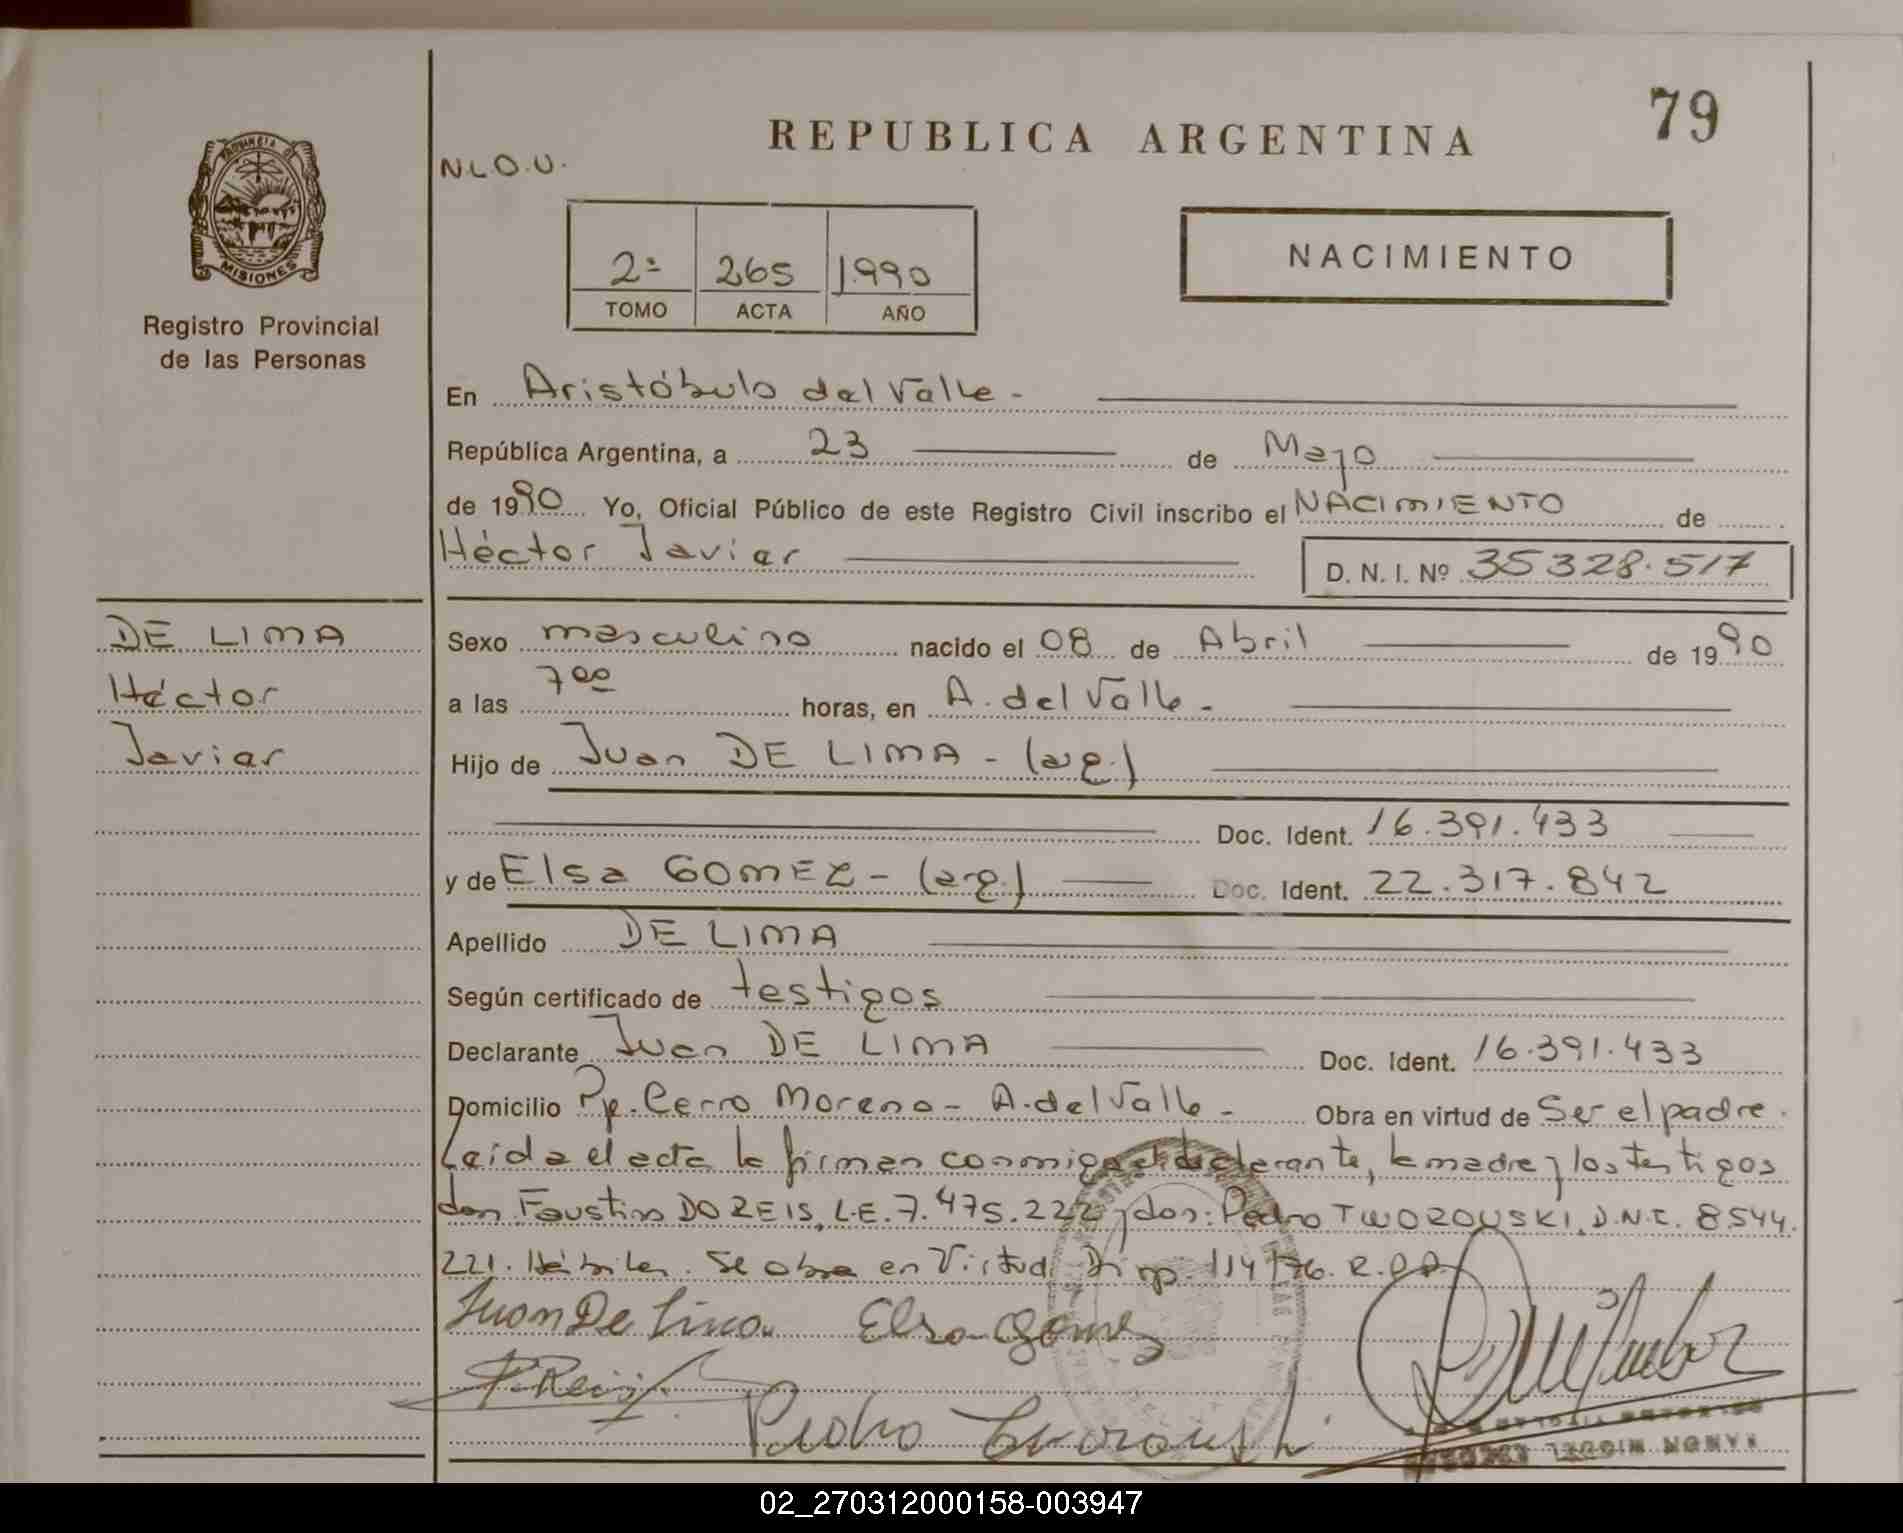 79
REPUBLICA ARGENTINA
N.L.O.U.
PROVINCIA DE
MISIONES
Registro Provincial
de las Personas
2º 265 1.990
TOMO ACTA AÑO
NACIMIENTO
En Aristóbulo del Valle -
República Argentina, a 23 de Mayo
de 1990 Yo, Oficial Público de este Registro Civil inscribo el NACIMIENTO de
Héctor Javier D. N. I. Nº 35328.517
DE LIMA
Héctor
Javier
Sexo masculino nacido el 08 de Abril de 1990
a las 7 00 horas, en A. del Valle -
Hijo de Juan DE LIMA - (arg.)
Doc. Ident. 16.391.433
y de Elsa GOMEZ - (arg.) Doc. Ident. 22.317.842
Apellido DE LIMA
Según certificado de testigos
Declarante Juan DE LIMA Doc. Ident. 16.391.433
Domicilio Pje. Cerro Moreno - A. del Valle - Obra en virtud de Ser el padre.
Leída el acta la firman conmigo el declarante, la madre y los testigos
don Faustino DOZEIS, L.E. 7.475.222 y don: Pedro TWOROUSKI, D.N.I. 8.544.
221. Hábiles. Se obra en Virtud Disp. 114/76. R.P.P.
Juan De Lima. Elsa Gomez
Pedro
02_270312000158-003947